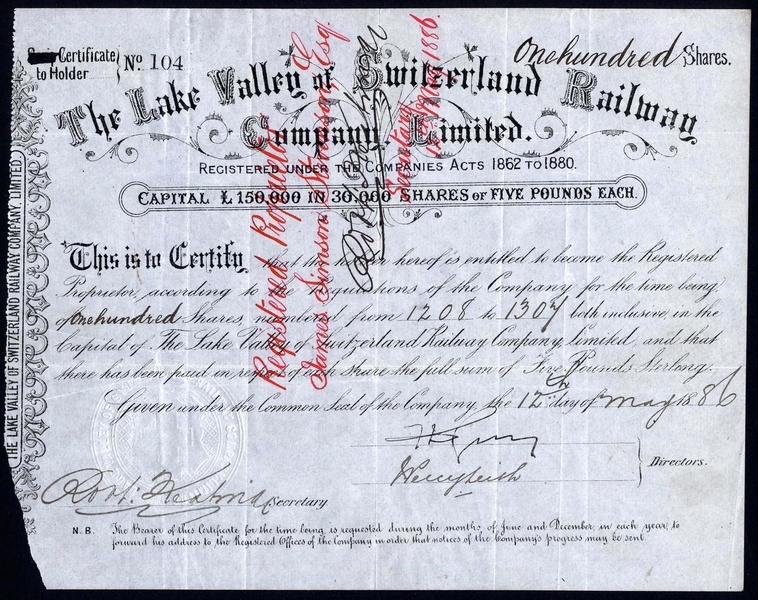 Certificate to Holder
No. 104
One hundred Shares.
The Lake Valley of Switzerland Railway
Company, Limited.
Registered under the Companies Acts 1862 to 1880.
Capital £150,000 in 30,000 Shares of Five Pounds Each.
This is to Certify that the holder hereof is entitled to become the Registered
Proprietor, according to the Regulations of the Company for the time being,
of One hundred Shares, numbered from 1208 to 1307 both inclusive, in the
Capital of The Lake Valley of Switzerland Railway Company, Limited, and that
there has been paid in respect of each Share the full sum of Five Pounds Sterling.
Given under the Common Seal of the Company, the 12th day of May 1886
Directors.
Secretary
N.B. The Bearer of this Certificate for the time being is requested during the months of June and December in each year, to
forward his address to the Registered Offices of the Company in order that notices of the Company's progress may be sent.
THE LAKE VALLEY OF SWITZERLAND RAILWAY COMPANY, LIMITED.
Registered Proprietor
James Simson Esq.
Secretary
May 1886.